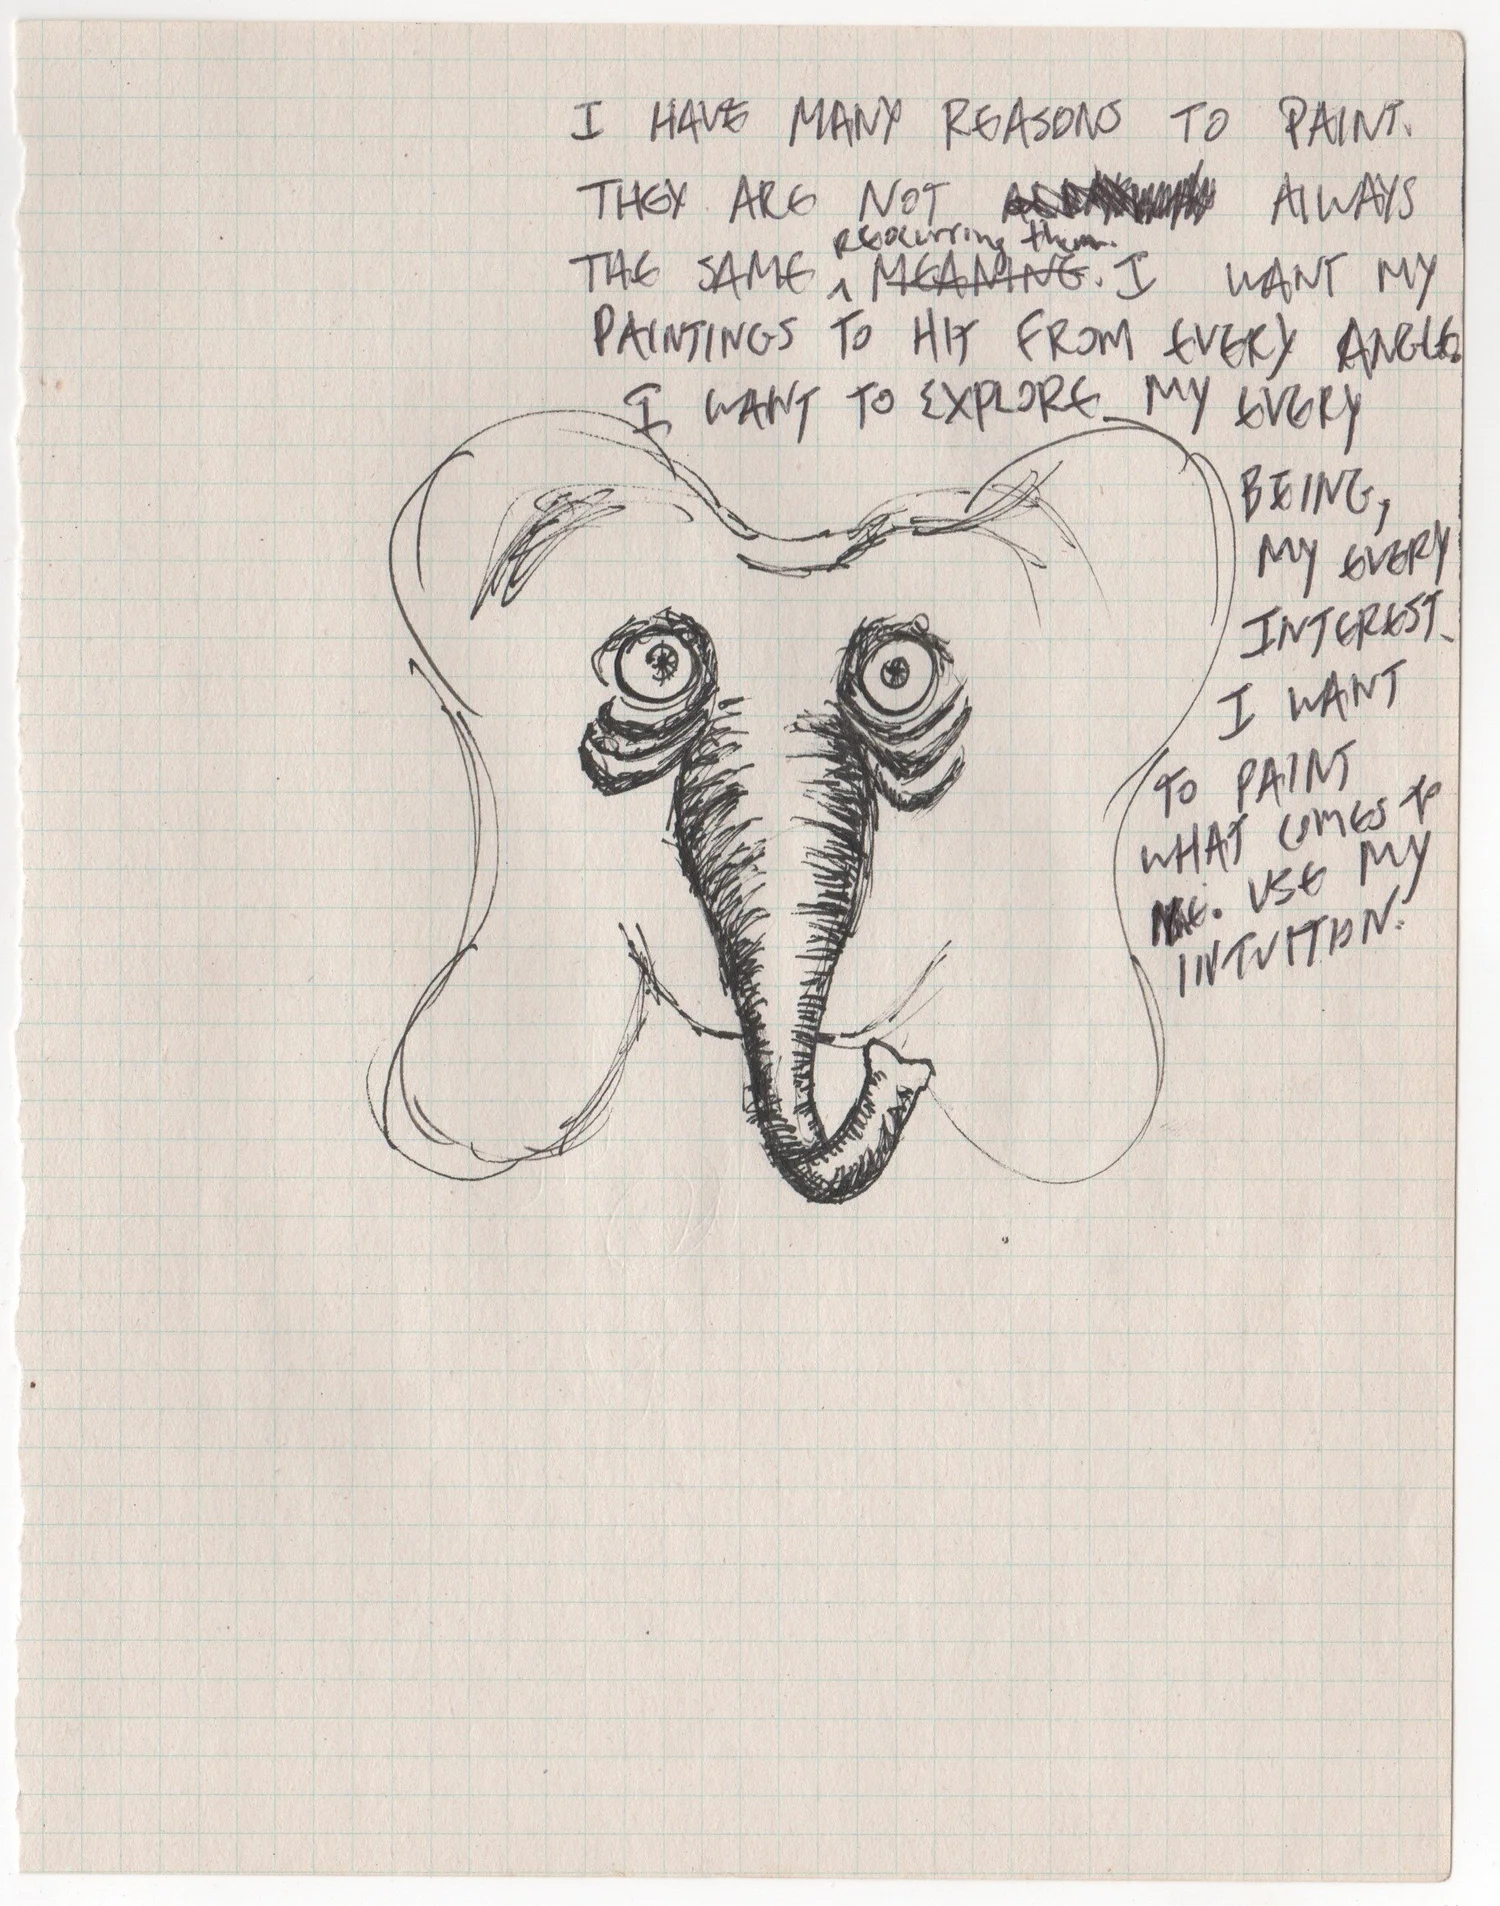 I HAVE MANY REASONS TO PAINT.
THEY ARE NOT ALWAYS
reocurring them.
THE SAME ^ MEANING. I WANT MY
PAINTINGS TO HIT FROM EVERY ANGLE.
I WANT TO EXPLORE MY EVERY
BEING,
MY EVERY
INTEREST.
I WANT
TO PAINT
WHAT COMES to
ME. USE MY
INTUITION.